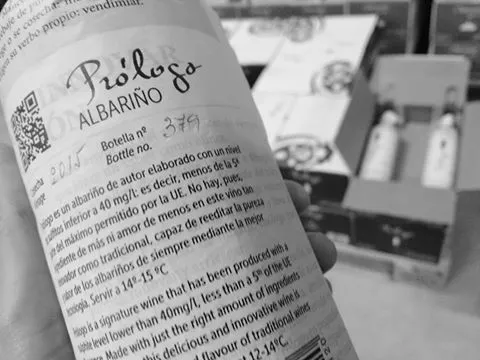 su verbo propio: vendimiar.
Prólogo
ALBARIÑO
2015
Botella nº 379
Bottle no.
logo es un albariño de autor elaborado con un nivel
sulfitos inferior a 40 mg/l: es decir, menos de la 5ª
del máximo permitido por la UE. No hay, pues,
rediente de más ni amor de menos en este vino tan
vador como tradicional, capaz de reeditar la pureza
or de los albariños de siempre mediante la mejor
nología. Servir a 14º-15 ºC
ólogo is a signature wine that has been produced with a
phite level lower than 40mg/l, less than a 5th of the UE
ance. Made with just the right amount of ingredients
this delicious and innovative wine is
and flavour of traditional wines
12-14ºC.